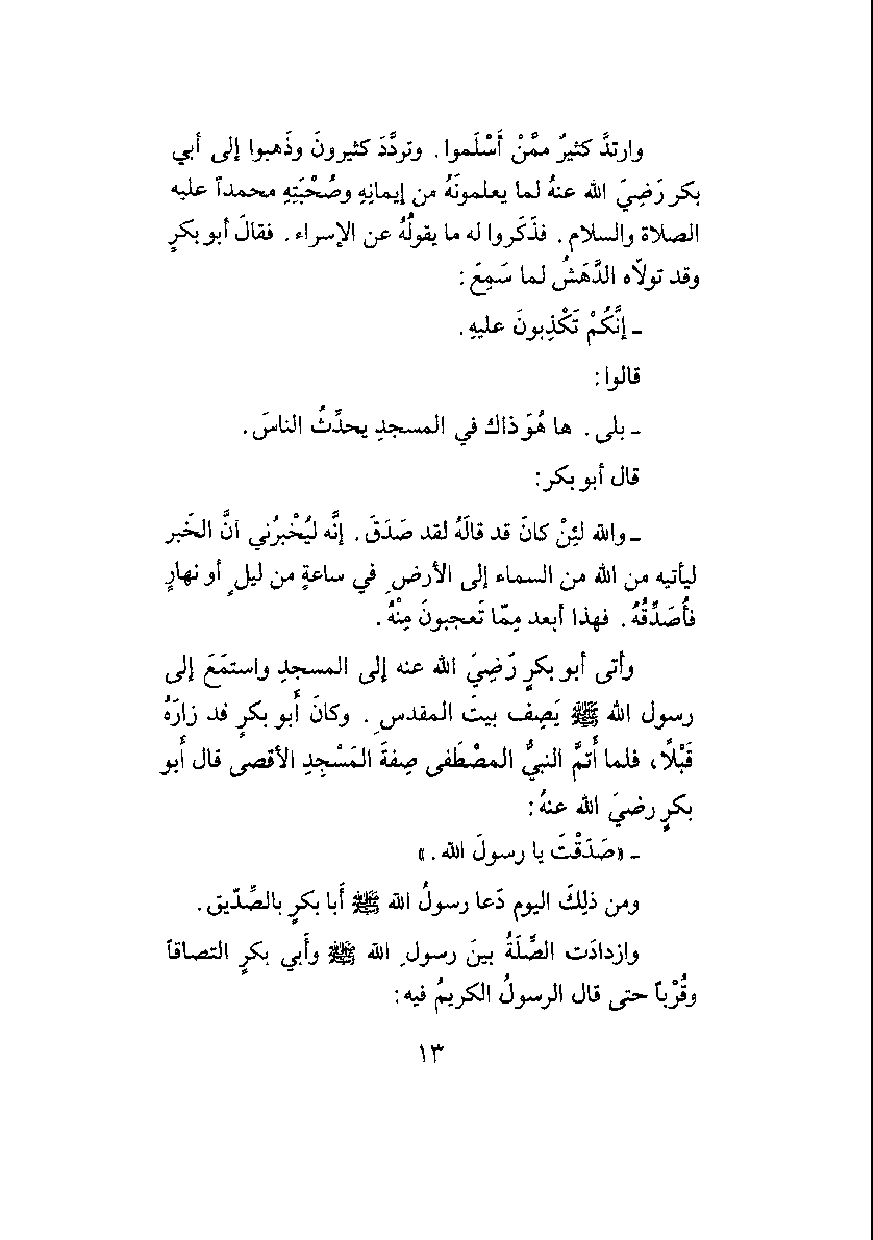 وارتدَّ كثيرٌ ممَّنْ أَسْلَموا . وتردَّدَ كثيرونَ وذَهبوا إلى أبي
بكر رَضِيَ الله عنهُ لما يعلمونَهُ من إيمانِهِ وصُحْبَتِهِ محمداً عليه
الصلاة والسلام . فذَكَروا له ما يقولُهُ عن الإسراء . فقالَ أبو بكرٍ
وقد تولاّه الدَّهَشُ لما سَمِعَ :
ـ إنَّكُمْ تَكْذِبونَ عليهِ .
قالوا :
ـ بلى . ها هُوَ ذاك في المسجدِ يحدِّثُ الناسَ .
قال أبو بكر :
ـ والله لئِنْ كانَ قد قالَهُ لقد صَدَقَ . إنَّه ليُخْبرُني أنَّ الخَبر
ليأتيه من الله من السماء إلى الأرضِ في ساعةٍ من ليلٍ أو نهارٍ
فأُصَدِّقُهُ . فهذا أبعد مِمّا تَعجبونَ مِنْهُ .
وأتى أبو بكرٍ رَضِيَ الله عنه إلى المسجدِ واستمَعَ إلى
رسول الله ﷺ يَصِف بيتَ المقدسِ . وكانَ أبو بكرٍ قد زارَهُ
قَبْلاً ، فلما أَتمَّ النبيُّ المصْطَفى صِفةَ المَسْجِدِ الأقصى قال أَبو
بكرٍ رضيَ الله عنهُ :
ـ «صَدَقْتَ يا رسولَ الله . »
ومن ذلِكَ اليوم دَعا رسولُ الله ﷺ أَبا بكرٍ بالصِّدّيق .
وازدادَت الصِّلَةُ بينَ رسولِ الله ﷺ وأَبي بكرٍ التصاقاً
وقُرْباً حتى قال الرسولُ الكريمُ فيه :
١٣